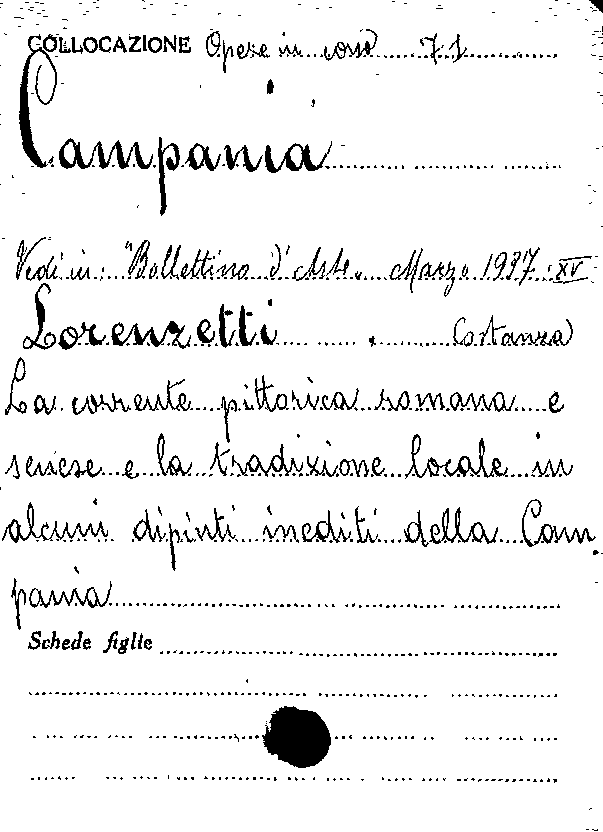 COLLOCAZIONE Opere in corso 71
Campania
Vedi in: "Bollettino d'Arte" Marzo 1937. XV
Lorenzetti Costanza
La corrente pittorica romana e
senese e la tradizione locale in
alcuni dipinti inediti della Cam
pania
Schede figlie